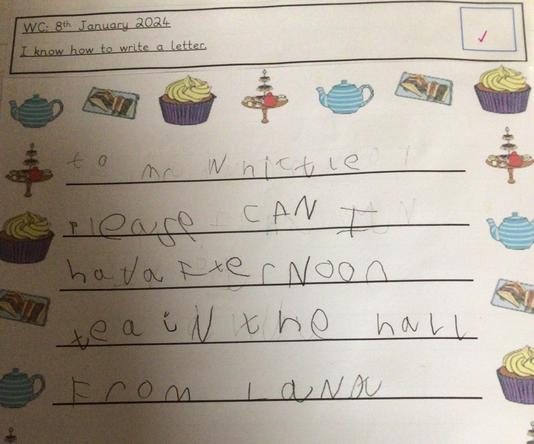 WC: 8th January 2024
I know how to write a letter.
to mr Whittle
Please CAN I
hava FterNOON
tea iN the hall
From LaNa